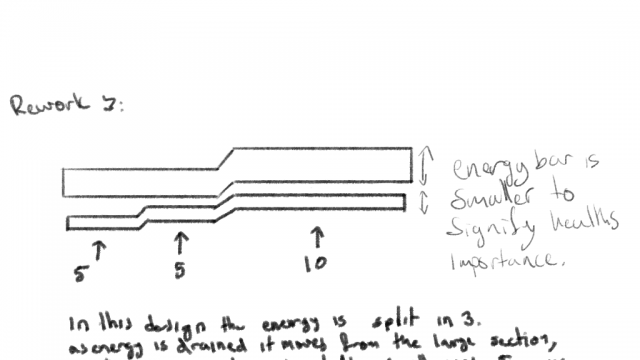 Rework 3:
energy bar is
smaller to
signify healths
importance.
5
5
10
In this design the energy is split in 3.
as energy is drained it moves from the large section,